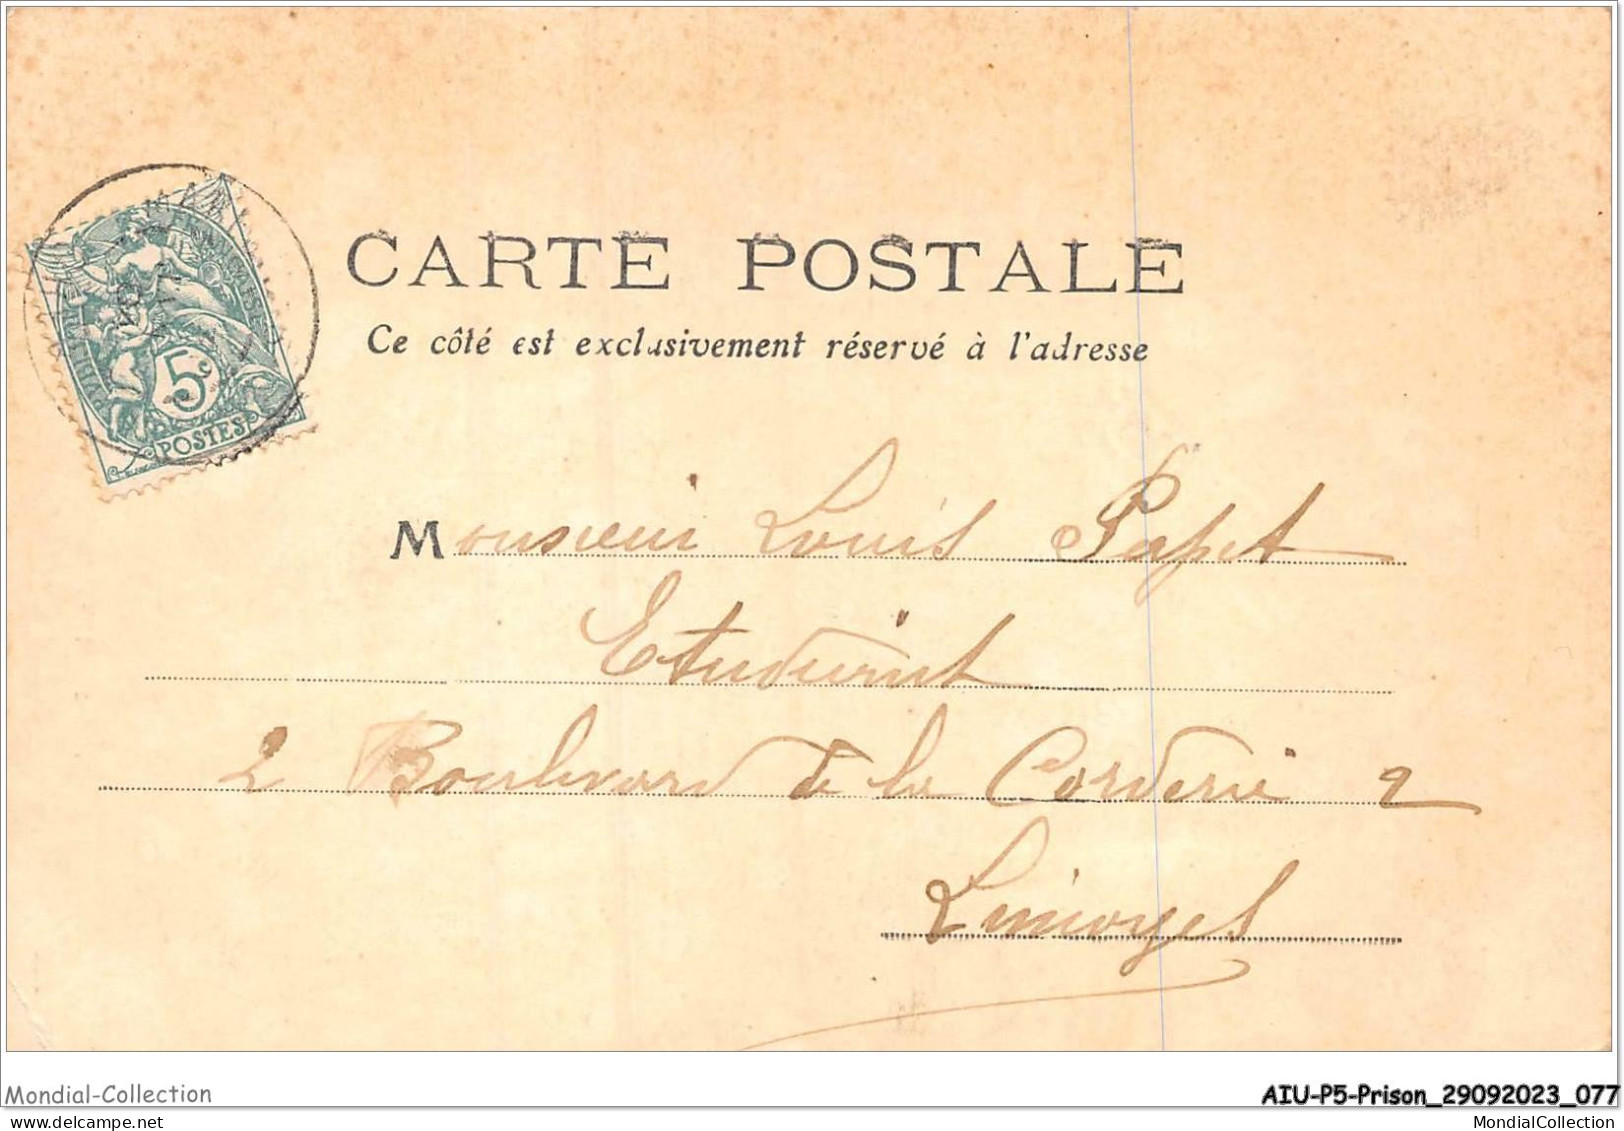 CARTE POSTALE
Ce côté est exclusivement réservé à l'adresse
RÉPUBLIQUE FRANÇAISE
5c
POSTES
Monsieur Louis Papet
Etudiant
2 Boulevard de la Corderie 2
Limoges
Mondial-Collection
AIU-P5-Prison_29092023_077
delcampe.net
MondialCollection